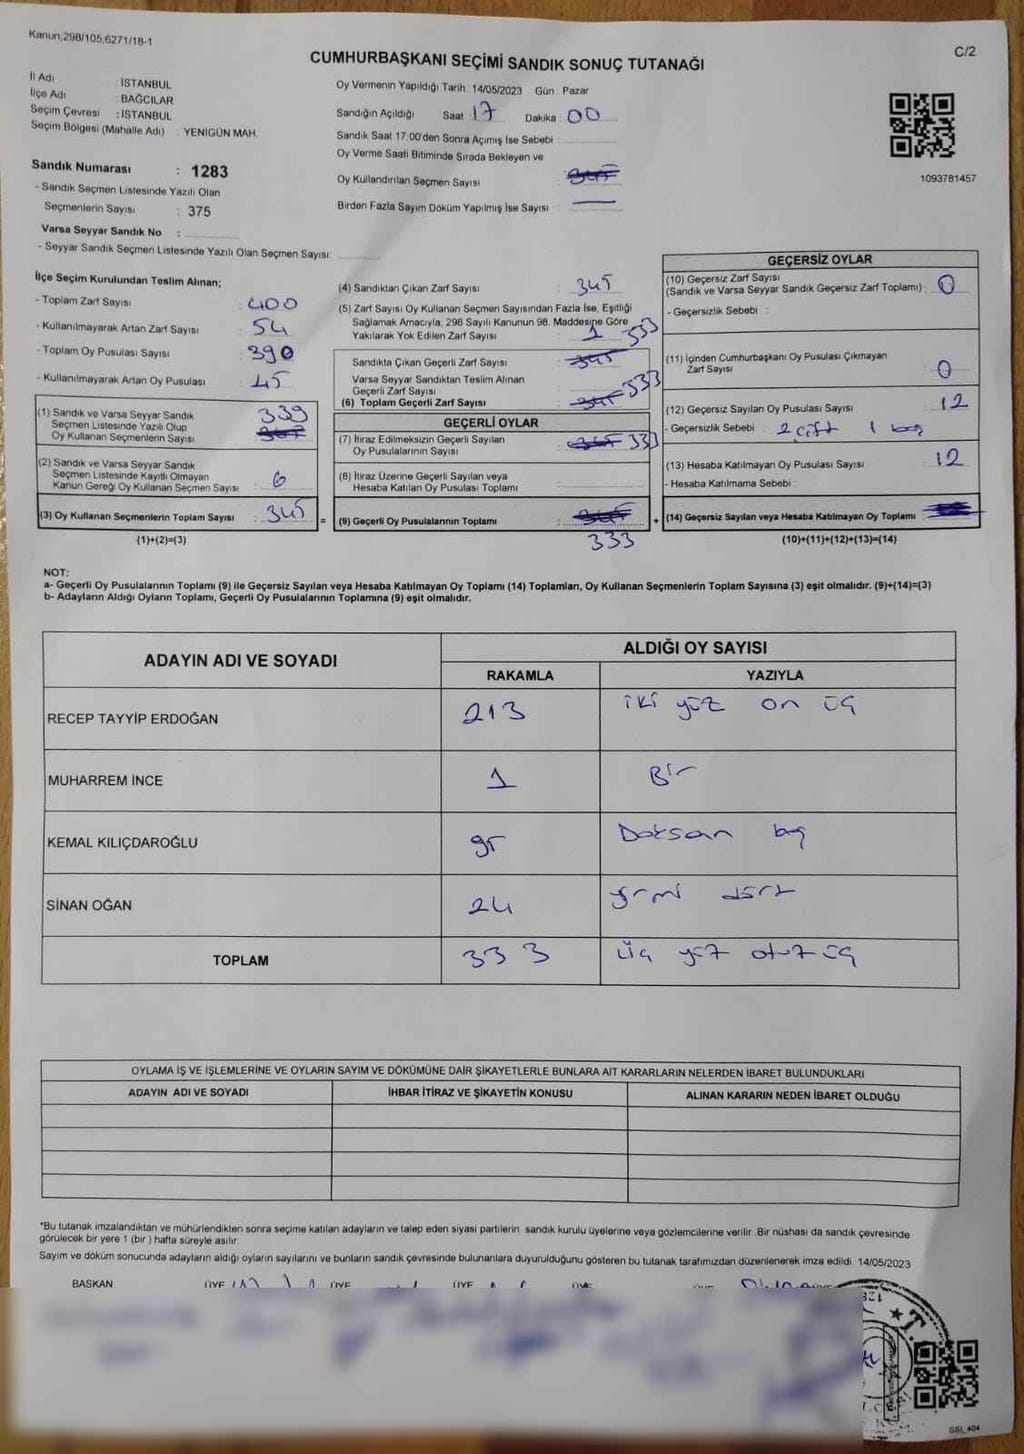 Kanun,298/105,6271/18-1
C/2
CUMHURBAŞKANI SEÇİMİ SANDIK SONUÇ TUTANAĞI
İl Adı : İSTANBUL
İlçe Adı : BAĞCILAR
Seçim Çevresi : İSTANBUL
Seçim Bölgesi (Mahalle Adı) : YENİGÜN MAH.
Sandık Numarası : 1283
- Sandık Seçmen Listesinde Yazılı Olan
Seçmenlerin Sayısı : 375
Varsa Seyyar Sandık No :
- Seyyar Sandık Seçmen Listesinde Yazılı Olan Seçmen Sayısı:
Oy Vermenin Yapıldığı Tarih 14/05/2023 Gün : Pazar
Sandığın Açıldığı Saat 17 Dakika : 00
Sandık Saat 17:00'den Sonra Açımış İse Sebebi :
Oy Verme Saati Bitiminde Sırada Bekleyen ve
Oy Kullandırılan Seçmen Sayısı :
Birden Fazla Sayım Döküm Yapılmış İse Sayısı : —
1093781457
İlçe Seçim Kurulundan Teslim Alınan;
- Toplam Zarf Sayısı : 400
- Kullanılmayarak Artan Zarf Sayısı : 54
- Toplam Oy Pusulası Sayısı : 390
- Kullanılmayarak Artan Oy Pusulası : 45
(1) Sandık ve Varsa Seyyar Sandık
Seçmen Listesinde Yazılı Olup
Oy Kullanan Seçmenlerin Sayısı : 339
(2) Sandık ve Varsa Seyyar Sandık
Seçmen Listesinde Kayıtlı Olmayan
Kanun Gereği Oy Kullanan Seçmen Sayısı : 6
(3) Oy Kullanan Seçmenlerin Toplam Sayısı : 345
(1)+(2)=(3)
(4) Sandıktan Çıkan Zarf Sayısı : 345
(5) Zarf Sayısı Oy Kullanan Seçmen Sayısından Fazla İse, Eşitliği
Sağlamak Amacıyla, 298 Sayılı Kanunun 98. Maddesine Göre
Yakılarak Yok Edilen Zarf Sayısı : 1
Sandıkta Çıkan Geçerli Zarf Sayısı : 345 333
Varsa Seyyar Sandıktan Teslim Alınan
Geçerli Zarf Sayısı
(6) Toplam Geçerli Zarf Sayısı : 345 333
GEÇERLİ OYLAR
(7) İtiraz Edilmeksizin Geçerli Sayılan
Oy Pusulalarının Sayısı : 345 333
(8) İtiraz Üzerine Geçerli Sayılan veya
Hesaba Katılan Oy Pusulası Toplamı :
= (9) Geçerli Oy Pusulalarının Toplamı : 345
333
GEÇERSİZ OYLAR
(10) Geçersiz Zarf Sayısı
(Sandık ve Varsa Seyyar Sandık Geçersiz Zarf Toplamı) : 0
- Geçersizlik Sebebi :
(11) İçinden Cumhurbaşkanı Oy Pusulası Çıkmayan
Zarf Sayısı : 0
(12) Geçersiz Sayılan Oy Pusulası Sayısı : 12
- Geçersizlik Sebebi : 2 çift 1 boş
(13) Hesaba Katılmayan Oy Pusulası Sayısı : 12
- Hesaba Katılmama Sebebi :
+ (14) Geçersiz Sayılan veya Hesaba Katılmayan Oy Toplamı :
(10)+(11)+(12)+(13)=(14)
NOT:
a- Geçerli Oy Pusulalarının Toplamı (9) ile Geçersiz Sayılan veya Hesaba Katılmayan Oy Toplamı (14) Toplamları, Oy Kullanan Seçmenlerin Toplam Sayısına (3) eşit olmalıdır. (9)+(14)=(3)
b- Adayların Aldığı Oyların Toplamı, Geçerli Oy Pusulalarının Toplamına (9) eşit olmalıdır.
ADAYIN ADI VE SOYADI
ALDIĞI OY SAYISI
RAKAMLA YAZIYLA
RECEP TAYYİP ERDOĞAN 213 iki yüz on üç
MUHARREM İNCE 1 Bir
KEMAL KILIÇDAROĞLU 95 Doksan beş
SİNAN OĞAN 24 yirmi dört
TOPLAM 333 üç yüz otuz üç
OYLAMA İŞ VE İŞLEMLERİNE VE OYLARIN SAYIM VE DÖKÜMÜNE DAİR ŞİKAYETLERLE BUNLARA AİT KARARLARIN NELERDEN İBARET BULUNDUKLARI
ADAYIN ADI VE SOYADI İHBAR İTİRAZ VE ŞİKAYETİN KONUSU ALINAN KARARIN NEDEN İBARET OLDUĞU
*Bu tutanak imzalandıktan ve mühürlendikten sonra seçime katılan adayların ve talep eden siyasi partilerin sandık kurulu üyelerine veya gözlemcilerine verilir. Bir nüshası da sandık çevresinde
görülecek bir yere 1 (bir ) hafta süreyle asılır.
Sayım ve döküm sonucunda adayların aldığı oyların sayılarını ve bunların sandık çevresinde bulunanlara duyurulduğunu gösteren bu tutanak tarafımızdan düzenlenerek imza edildi. 14/05/2023
BAŞKAN ÜYE ÜYE ÜYE ÜYE